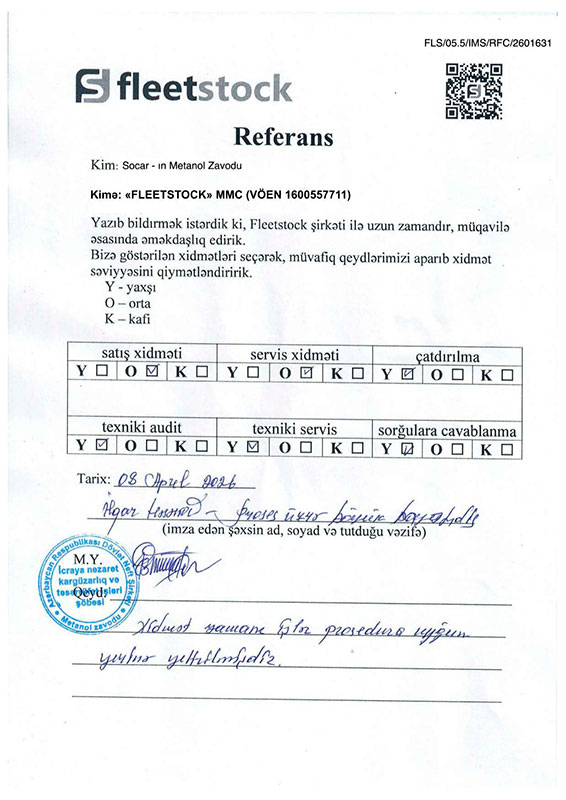 FLS/05.5/IMS/RFC/2601631
fleetstock
Referans
Kim: Socar - ın Metanol Zavodu
Kimə: «FLEETSTOCK» MMC (VÖEN 1600557711)
Yazıb bildirmək istərdik ki, Fleetstock şirkəti ilə uzun zamandır, müqavilə
əsasında əməkdaşlıq edirik.
Bizə göstərilən xidmətləri seçərək, müvafiq qeydlərimizi aparıb xidmət
səviyyəsini qiymətləndiririk.
Y - yaxşı
O – orta
K – kafi
satış xidməti servis xidməti çatdırılma
Y ☐ O ☑ K ☐ Y ☐ O ☑ K ☐ Y ☑ O ☐ K ☐
texniki audit texniki servis sorğulara cavablanma
Y ☑ O ☐ K ☐ Y ☑ O ☐ K ☐ Y ☑ O ☐ K ☐
Tarix: 08 April 2026
İlqar
(imza edən şəxsin ad, soyad və tutduğu vəzifə)
M.Y.
Azərbaycan Respublikası Dövlət Neft Şirkəti
İcraya nəzarət
kargüzarlıq və
şöbəsi
Metanol zavodu
Qeyd:
Xidmət zamanı işlər prosedura uyğun
yerinə yetirilmişdir.